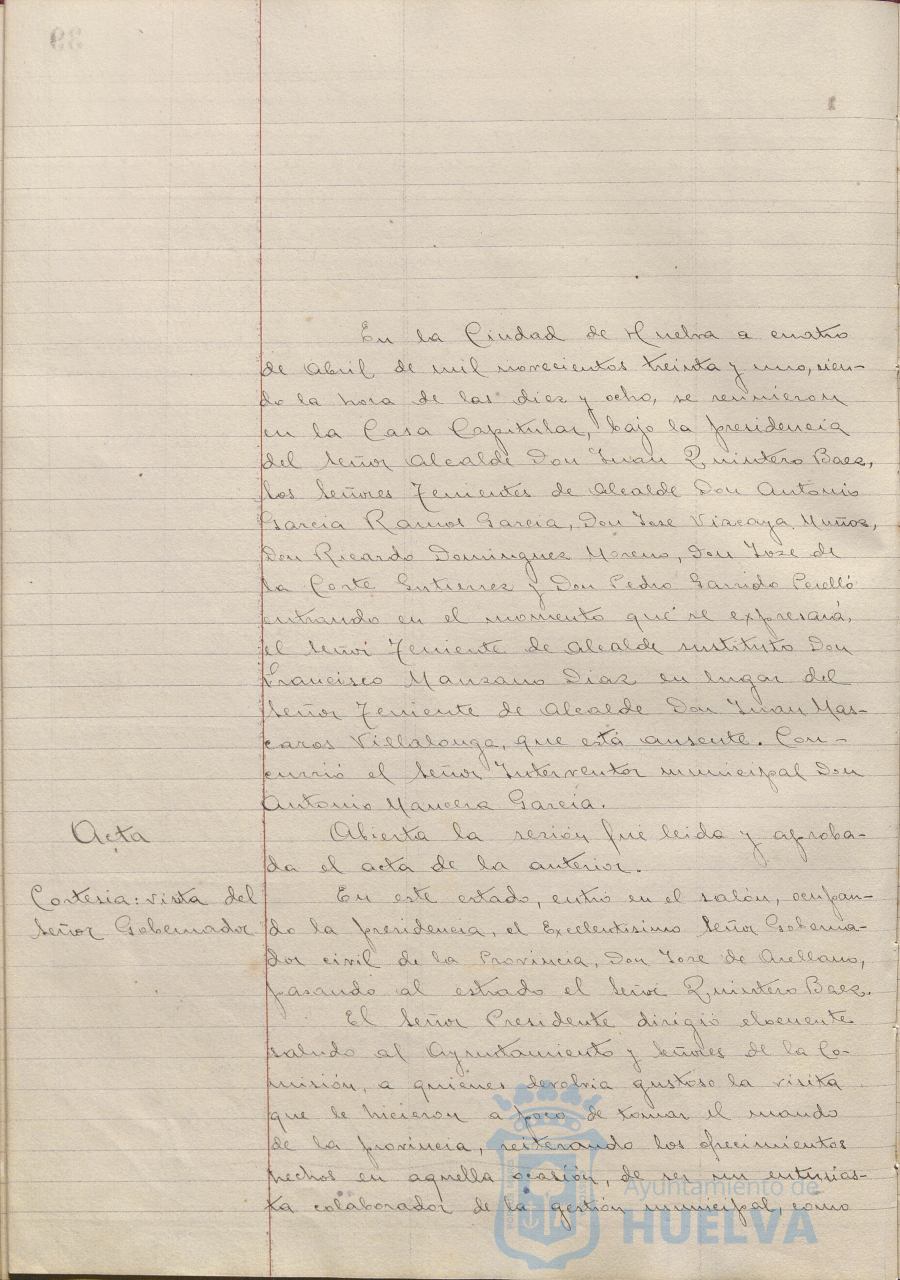 39
1
En la Ciudad de Huelva a cuatro
de Abril de mil novecientos treinta y uno, sien-
do la hora de las diez y ocho, se reunieron
en la Casa Capitular, bajo la presidencia
del Señor Alcalde Don Juan Quintero Baez,
los Señores Tenientes de Alcalde Don Antonio
Garcia Ramos Garcia, Don Jose Vizcaya Muñoz,
Don Ricardo Dominguez Moreno, Don Jose de
la Corte Gutierrez y Don Pedro Garrido Perelló
entrando en el momento que se expresará,
el Señor Teniente de Alcalde sustituto Don
Francisco Manzano Diaz en lugar del
Señor Teniente de Alcalde Don Juan Mas-
caros Villalonga, que está ausente. Con-
currió el Señor Interventor municipal Don
Antonio Mancera García.
Acta
Abierta la sesión, fué leida y aproba-
da el acta de la anterior.
Cortesia: visita del
Señor Gobernador
En este estado, entró en el salón, ocupan-
do la presidencia, el Excelentisimo Señor Goberna-
dor civil de la Provincia, Don Jose de Arellano,
pasando al estrado el Señor Quintero Baez.
El Señor Presidente dirigió elocuente
saludo al Ayuntamiento y Señores de la Co-
misión, a quienes devolvia gustoso la visita
que le hicieron a poco de tomar el mando
de la provincia, reiterando los ofrecimientos
hechos en aquella ocasión, de ser un entusias-
ta colaborador de la gestión municipal, como
Ayuntamiento de
HUELVA